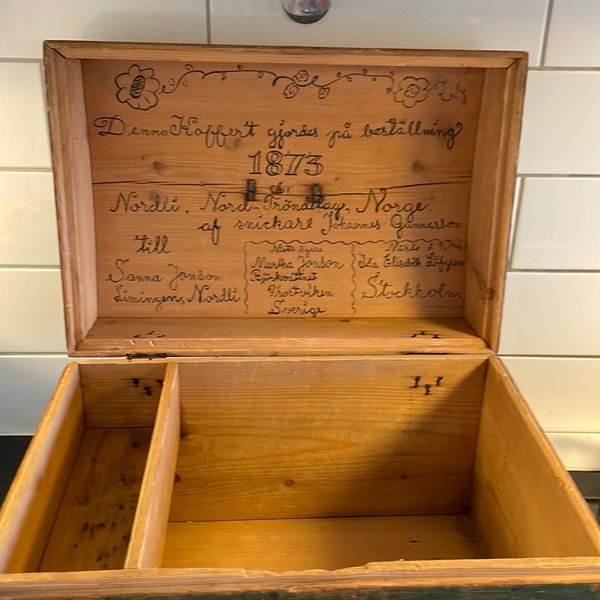 Denna Koffert gjordes på beställning
1873
i
Nordli, Nord-Tröndelag, Norge.
af snickare Johannes Gunnarsson
till
Sanna Jonson
Limingen, Nordli
Martha Jonson
Björkvattnet
Frostviken
Sverige
Ida Elisabet Löfgren
Stockholm